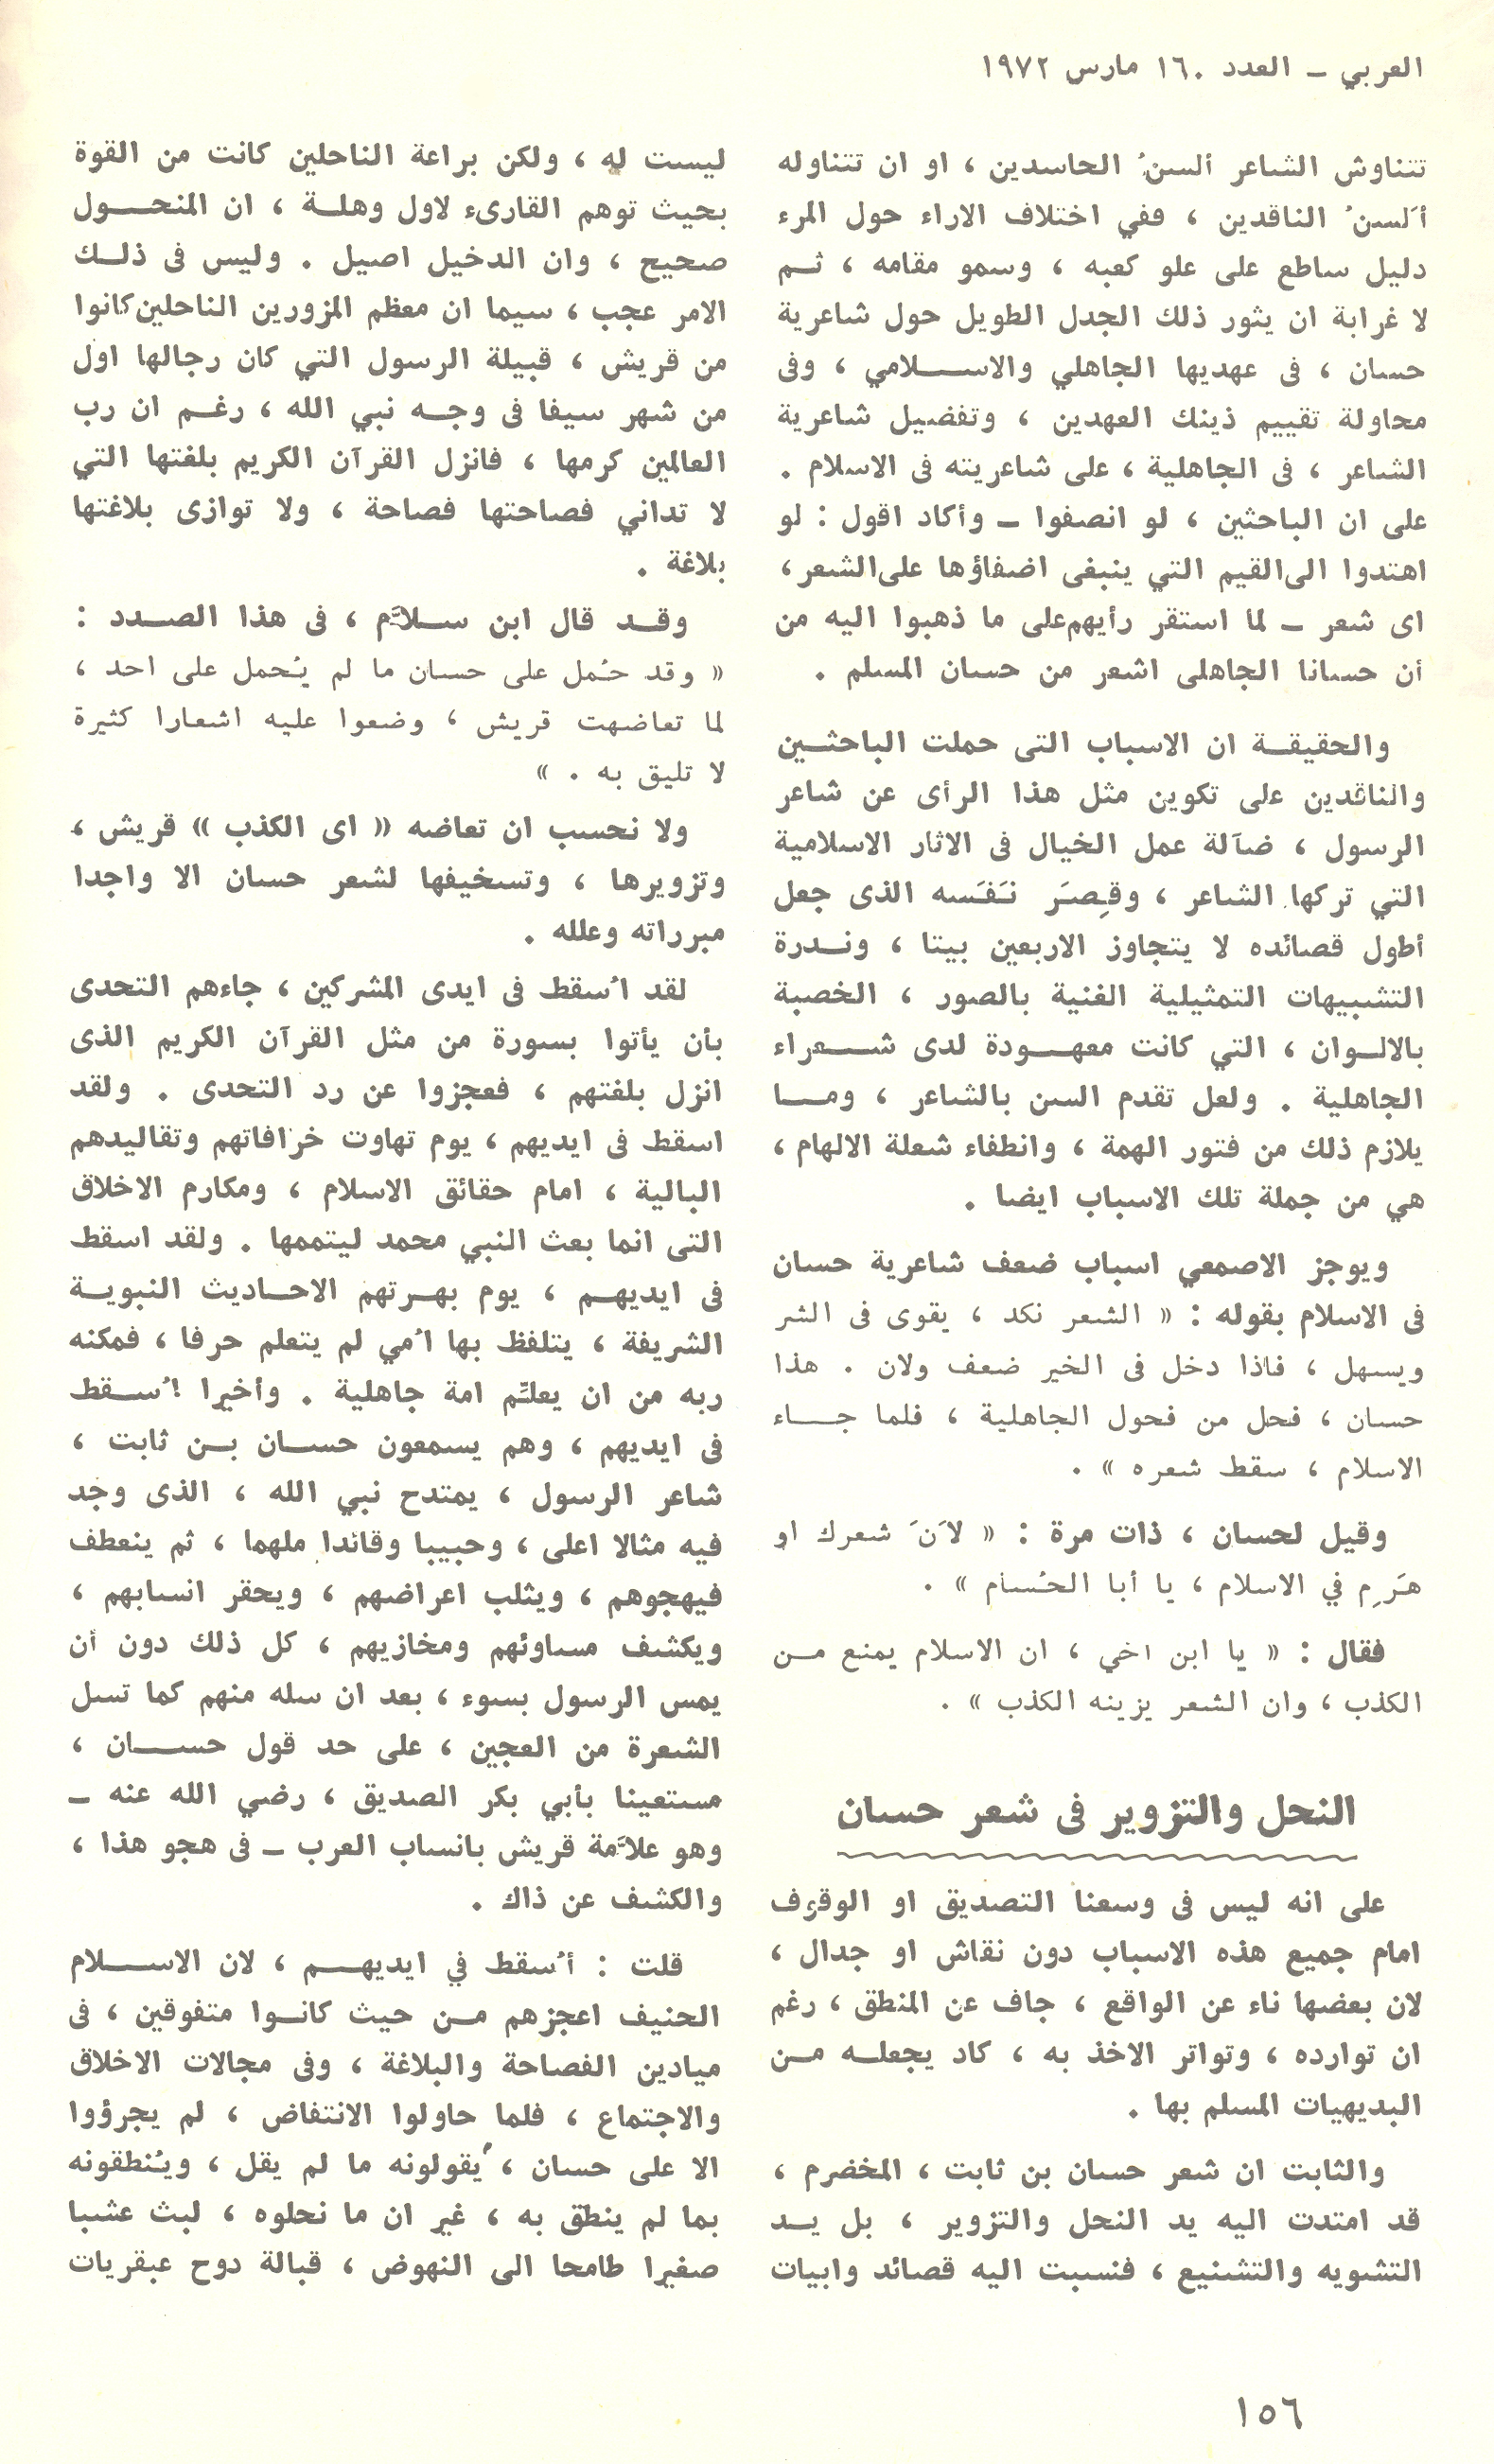 العربي – العدد ١٦٠ مارس ١٩٧٢
تتناوش الشاعر ألسنُ الحاسدين ، او ان تتناوله
ألسنُ الناقدين ، ففي اختلاف الاراء حول المرء
دليل ساطع على علو كعبه ، وسمو مقامه ، ثم
لا غرابة ان يثور ذلك الجدل الطويل حول شاعرية
حسان ، فى عهديها الجاهلي والاسلامي ، وفى
محاولة تقييم ذينك العهدين ، وتفضيل شاعرية
الشاعر ، فى الجاهلية ، على شاعريته فى الاسلام .
على ان الباحثين ، لو انصفوا – وأكاد اقول : لو
اهتدوا الى القيم التي ينبغى اضفاؤها على الشعر ،
اى شعر – لما استقر رأيهم على ما ذهبوا اليه من
أن حسانا الجاهلى اشعر من حسان المسلم .
والحقيقة ان الاسباب التى حملت الباحثين
والناقدين على تكوين مثل هذا الرأى عن شاعر
الرسول ، ضآلة عمل الخيال فى الاثار الاسلامية
التي تركها الشاعر ، وقِصَر نَفَسه الذى جعل
أطول قصائده لا يتجاوز الاربعين بيتا ، وندرة
التشبيهات التمثيلية الغنية بالصور ، الخصبة
بالالوان ، التي كانت معهودة لدى شعراء
الجاهلية . ولعل تقدم السن بالشاعر ، وما
يلازم ذلك من فتور الهمة ، وانطفاء شعلة الالهام ،
هي من جملة تلك الاسباب ايضا .
ويوجز الاصمعي اسباب ضعف شاعرية حسان
فى الاسلام بقوله : « الشعر نكد ، يقوى فى الشر
ويسهل ، فاذا دخل فى الخير ضعف ولان . هذا
حسان ، فحل من فحول الجاهلية ، فلما جاء
الاسلام ، سقط شعره » .
وقيل لحسان ، ذات مرة : « لاَنَ شعرك او
هَرِم في الاسلام ، يا أبا الحُسام » .
فقال : « يا ابن اخي ، ان الاسلام يمنع من
الكذب ، وان الشعر يزينه الكذب » .
النحل والتزوير فى شعر حسان
على انه ليس فى وسعنا التصديق او الوقوف
امام جميع هذه الاسباب دون نقاش او جدال ،
لان بعضها ناء عن الواقع ، جاف عن المنطق ، رغم
ان توارده ، وتواتر الاخذ به ، كاد يجعله من
البديهيات المسلم بها .
والثابت ان شعر حسان بن ثابت ، المخضرم ،
قد امتدت اليه يد النحل والتزوير ، بل يد
التشويه والتشنيع ، فنسبت اليه قصائد وابيات
ليست له ، ولكن براعة الناحلين كانت من القوة
بحيث توهم القارىء لاول وهلة ، ان المنحول
صحيح ، وان الدخيل اصيل . وليس فى ذلك
الامر عجب ، سيما ان معظم المزورين الناحلين كانوا
من قريش ، قبيلة الرسول التي كان رجالها اول
من شهر سيفا فى وجه نبي الله ، رغم ان رب
العالمين كرمها ، فانزل القرآن الكريم بلغتها التي
لا تداني فصاحتها فصاحة ، ولا توازى بلاغتها
بلاغة .
وقد قال ابن سلاَّم ، فى هذا الصدد :
« وقد حُمل على حسان ما لم يُحمل على احد ،
لما تعاضهت قريش ، وضعوا عليه اشعارا كثيرة
لا تليق به . »
ولا نحسب ان تعاضه « اى الكذب » قريش ،
وتزويرها ، وتسخيفها لشعر حسان الا واجدا
مبرراته وعلله .
لقد اُسقط فى ايدى المشركين ، جاءهم التحدى
بأن يأتوا بسورة من مثل القرآن الكريم الذى
انزل بلغتهم ، فعجزوا عن رد التحدى . ولقد
اسقط فى ايديهم ، يوم تهاوت خرافاتهم وتقاليدهم
البالية ، امام حقائق الاسلام ، ومكارم الاخلاق
التى انما بعث النبي محمد ليتممها . ولقد اسقط
فى ايديهم ، يوم بهرتهم الاحاديث النبوية
الشريفة ، يتلفظ بها اُمي لم يتعلم حرفا ، فمكنه
ربه من ان يعلّم امة جاهلية . وأخيرا اُسقط
فى ايديهم ، وهم يسمعون حسان بن ثابت ،
شاعر الرسول ، يمتدح نبي الله ، الذى وجد
فيه مثالا اعلى ، وحبيبا وقائدا ملهما ، ثم ينعطف
فيهجوهم ، ويثلب اعراضهم ، ويحقر انسابهم ،
ويكشف مساوئهم ومخازيهم ، كل ذلك دون أن
يمس الرسول بسوء ، بعد ان سله منهم كما تسل
الشعرة من العجين ، على حد قول حسان ،
مستعينا بأبي بكر الصديق ، رضي الله عنه –
وهو علاَّمة قريش بانساب العرب – فى هجو هذا ،
والكشف عن ذاك .
قلت : أُسقط في ايديهم ، لان الاسلام
الحنيف اعجزهم من حيث كانوا متفوقين ، فى
ميادين الفصاحة والبلاغة ، وفى مجالات الاخلاق
والاجتماع ، فلما حاولوا الانتفاض ، لم يجرؤوا
الا على حسان ، يُقولونه ما لم يقل ، ويُنطقونه
بما لم ينطق به ، غير ان ما نحلوه ، لبث عشبا
صغيرا طامحا الى النهوض ، قبالة دوح عبقريات
١٥٦